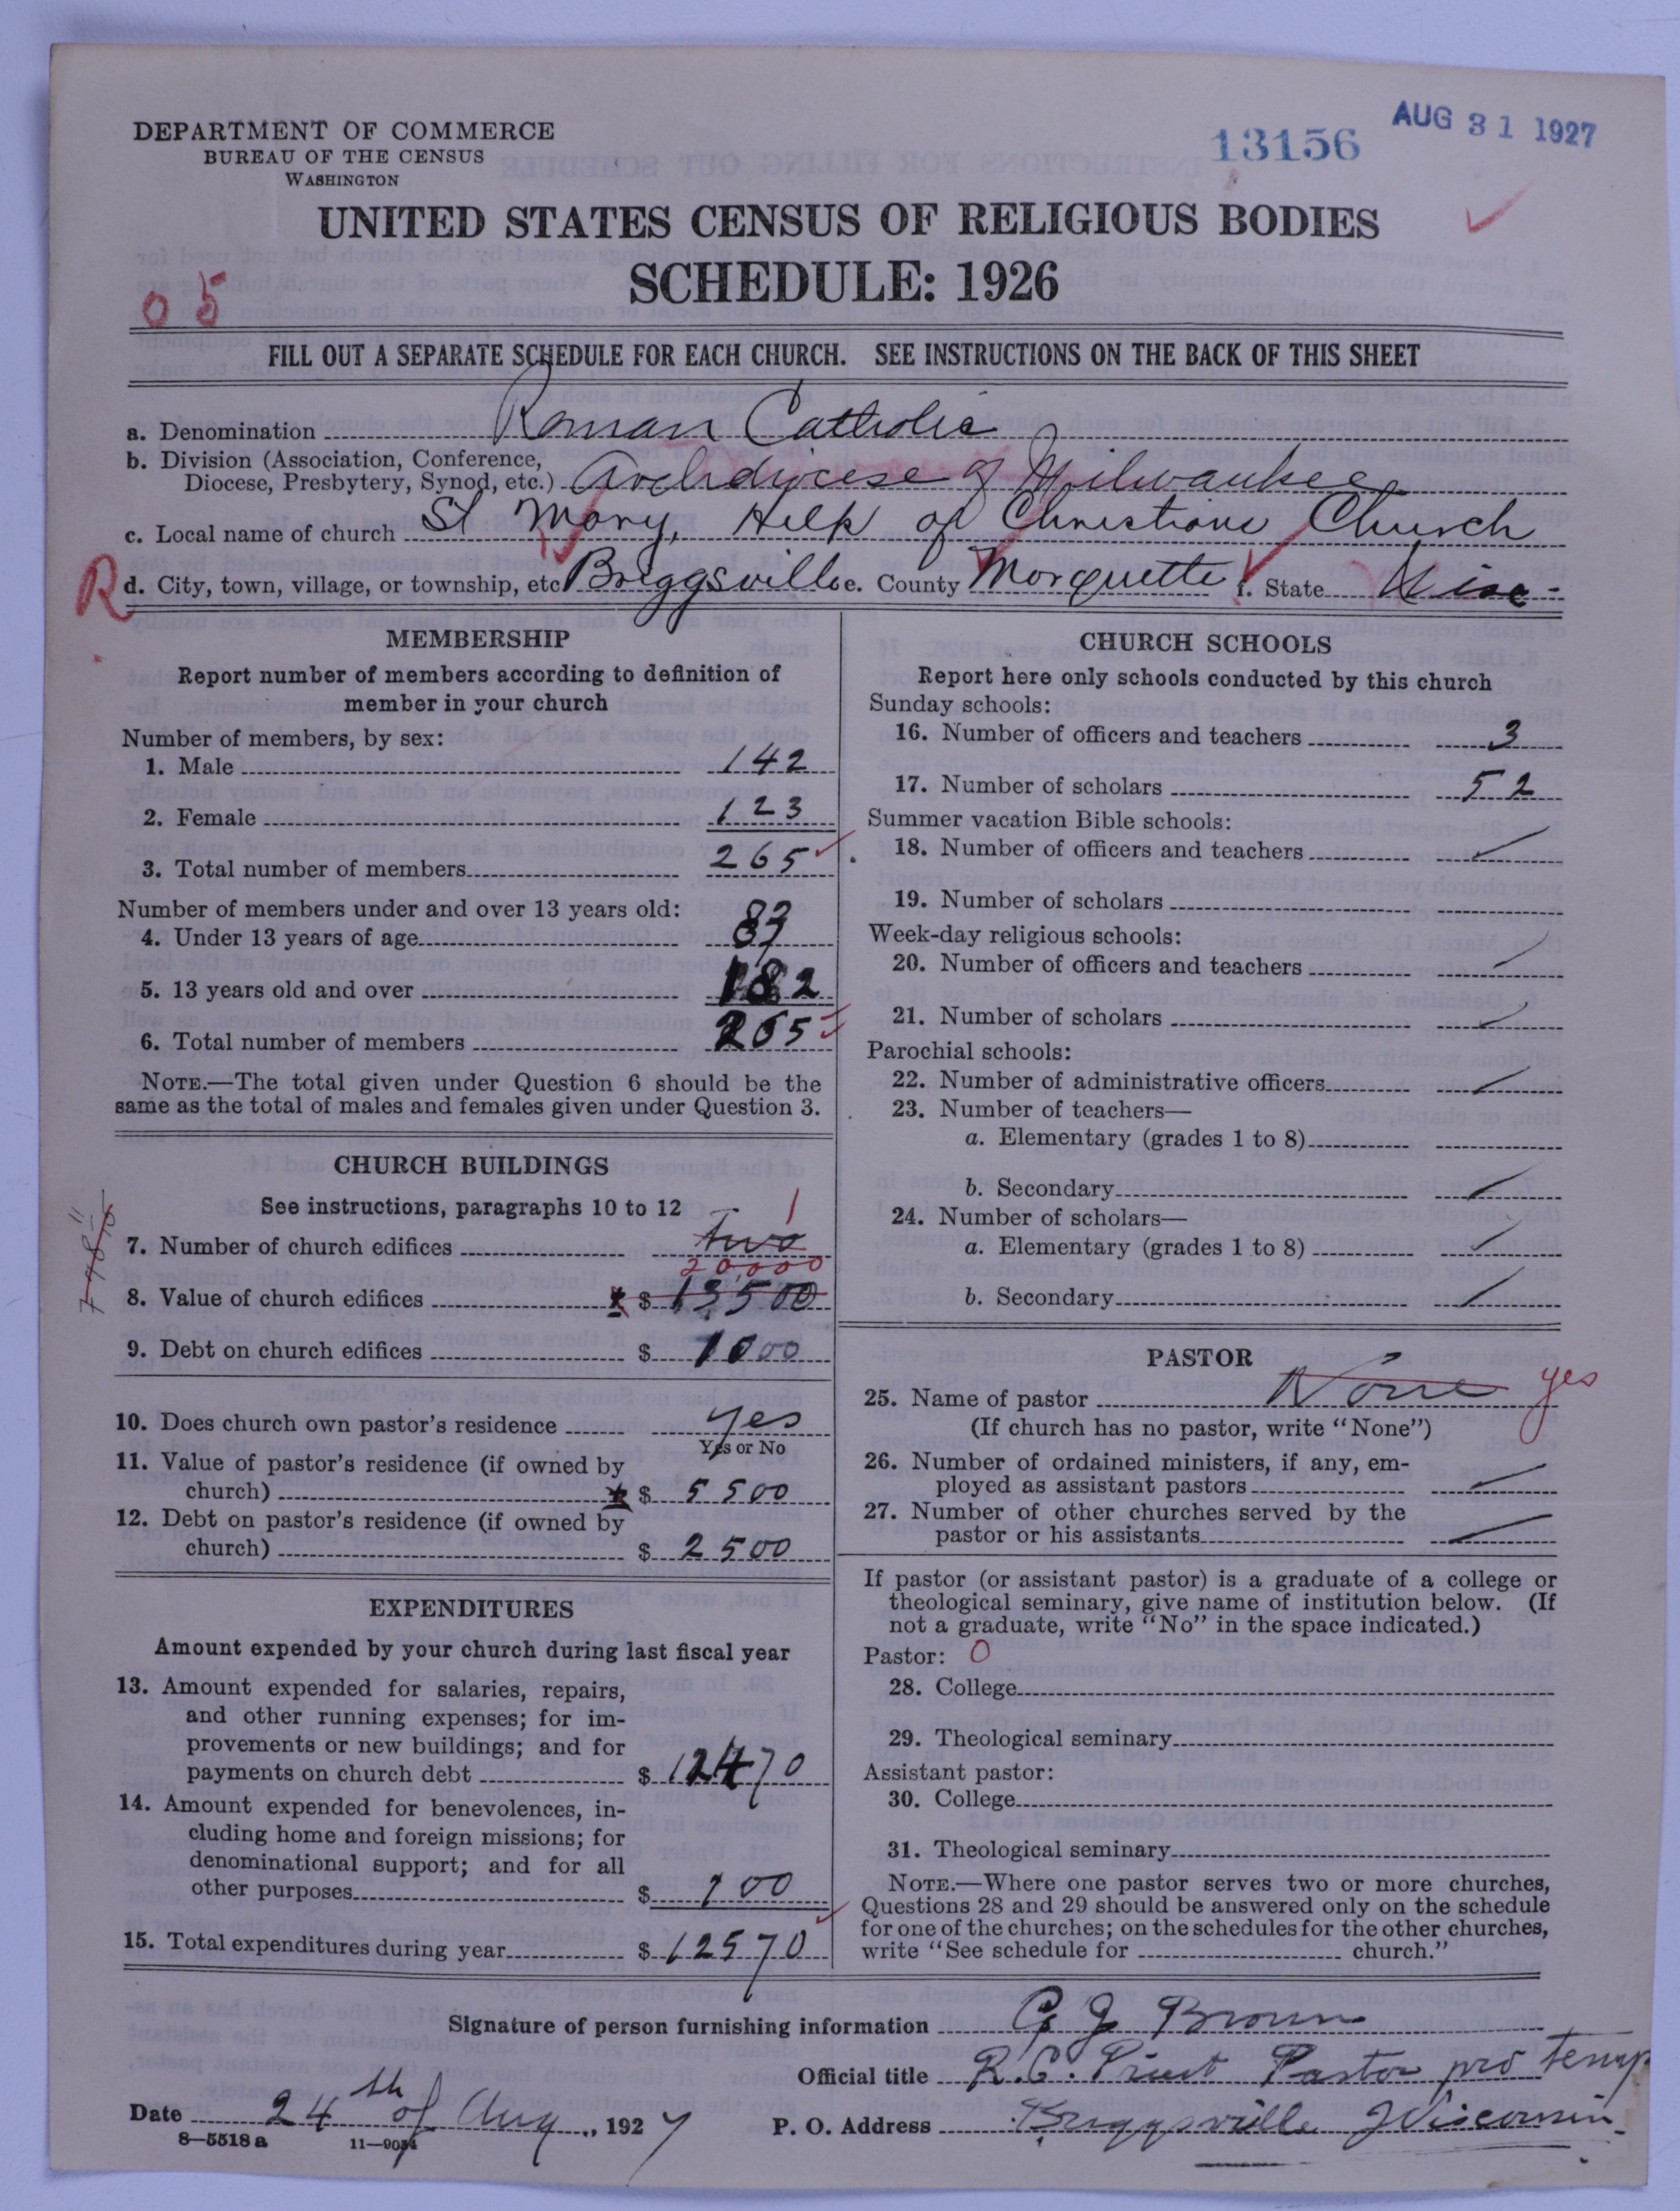 AUG 31 1927
13156
DEPARTMENT OF COMMERCE
BUREAU OF THE CENSUS
WASHINGTON
UNITED STATES CENSUS OF RELIGIOUS BODIES
SCHEDULE: 1926
05
FILL OUT A SEPARATE SCHEDULE FOR EACH CHURCH. SEE INSTRUCTIONS ON THE BACK OF THIS SHEET
a. Denomination Roman Catholic
b. Division (Association, Conference,
Diocese, Presbytery, Synod, etc.) Archdiocese of Milwaukee
c. Local name of church St Mary, Help of Christians Church
R d. City, town, village, or township, etc Briggsville e. County Marquette f. State Wisc.
MEMBERSHIP
Report number of members according to definition of
member in your church
Number of members, by sex:
1. Male 142
2. Female 123
3. Total number of members 265
Number of members under and over 13 years old:
4. Under 13 years of age 83
5. 13 years old and over 182
6. Total number of members 265
NOTE.—The total given under Question 6 should be the
same as the total of males and females given under Question 3.
CHURCH BUILDINGS
See instructions, paragraphs 10 to 12
7. Number of church edifices Two 1
20,000
8. Value of church edifices $ 13500
9. Debt on church edifices $ 1000
10. Does church own pastor's residence yes
Yes or No
11. Value of pastor's residence (if owned by
church) $ 5500
12. Debt on pastor's residence (if owned by
church) $ 2500
EXPENDITURES
Amount expended by your church during last fiscal year
13. Amount expended for salaries, repairs,
and other running expenses; for im-
provements or new buildings; and for
payments on church debt $ 12470
14. Amount expended for benevolences, in-
cluding home and foreign missions; for
denominational support; and for all
other purposes $ 100
15. Total expenditures during year $ 12570
CHURCH SCHOOLS
Report here only schools conducted by this church
Sunday schools:
16. Number of officers and teachers 3
17. Number of scholars 52
Summer vacation Bible schools:
18. Number of officers and teachers
19. Number of scholars
Week-day religious schools:
20. Number of officers and teachers
21. Number of scholars
Parochial schools:
22. Number of administrative officers
23. Number of teachers—
a. Elementary (grades 1 to 8)
b. Secondary
24. Number of scholars—
a. Elementary (grades 1 to 8)
b. Secondary
PASTOR
25. Name of pastor None yes
(If church has no pastor, write "None")
26. Number of ordained ministers, if any, em-
ployed as assistant pastors
27. Number of other churches served by the
pastor or his assistants
If pastor (or assistant pastor) is a graduate of a college or
theological seminary, give name of institution below. (If
not a graduate, write "No" in the space indicated.)
Pastor: 0
28. College
29. Theological seminary
Assistant pastor:
30. College
31. Theological seminary
NOTE.—Where one pastor serves two or more churches,
Questions 28 and 29 should be answered only on the schedule
for one of the churches; on the schedules for the other churches,
write "See schedule for church."
Signature of person furnishing information G J Brown
Official title R.C. Priest Pastor pro temp
Date 24th of Aug, 1927 P. O. Address Briggsville Wisconsin.
8—5518 a 11—9054